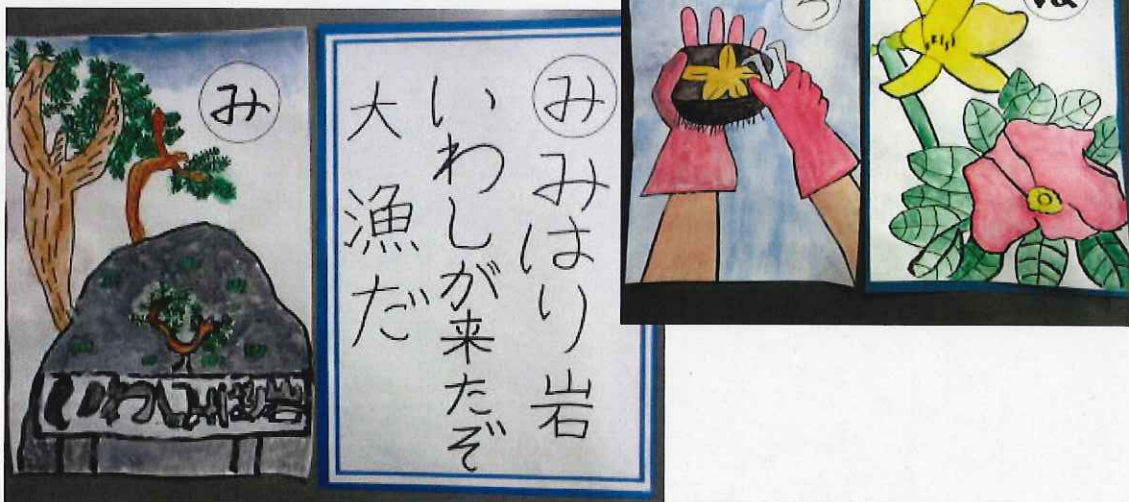 み
いわしみはり岩
み みはり岩
いわしが来たぞ
大漁だ